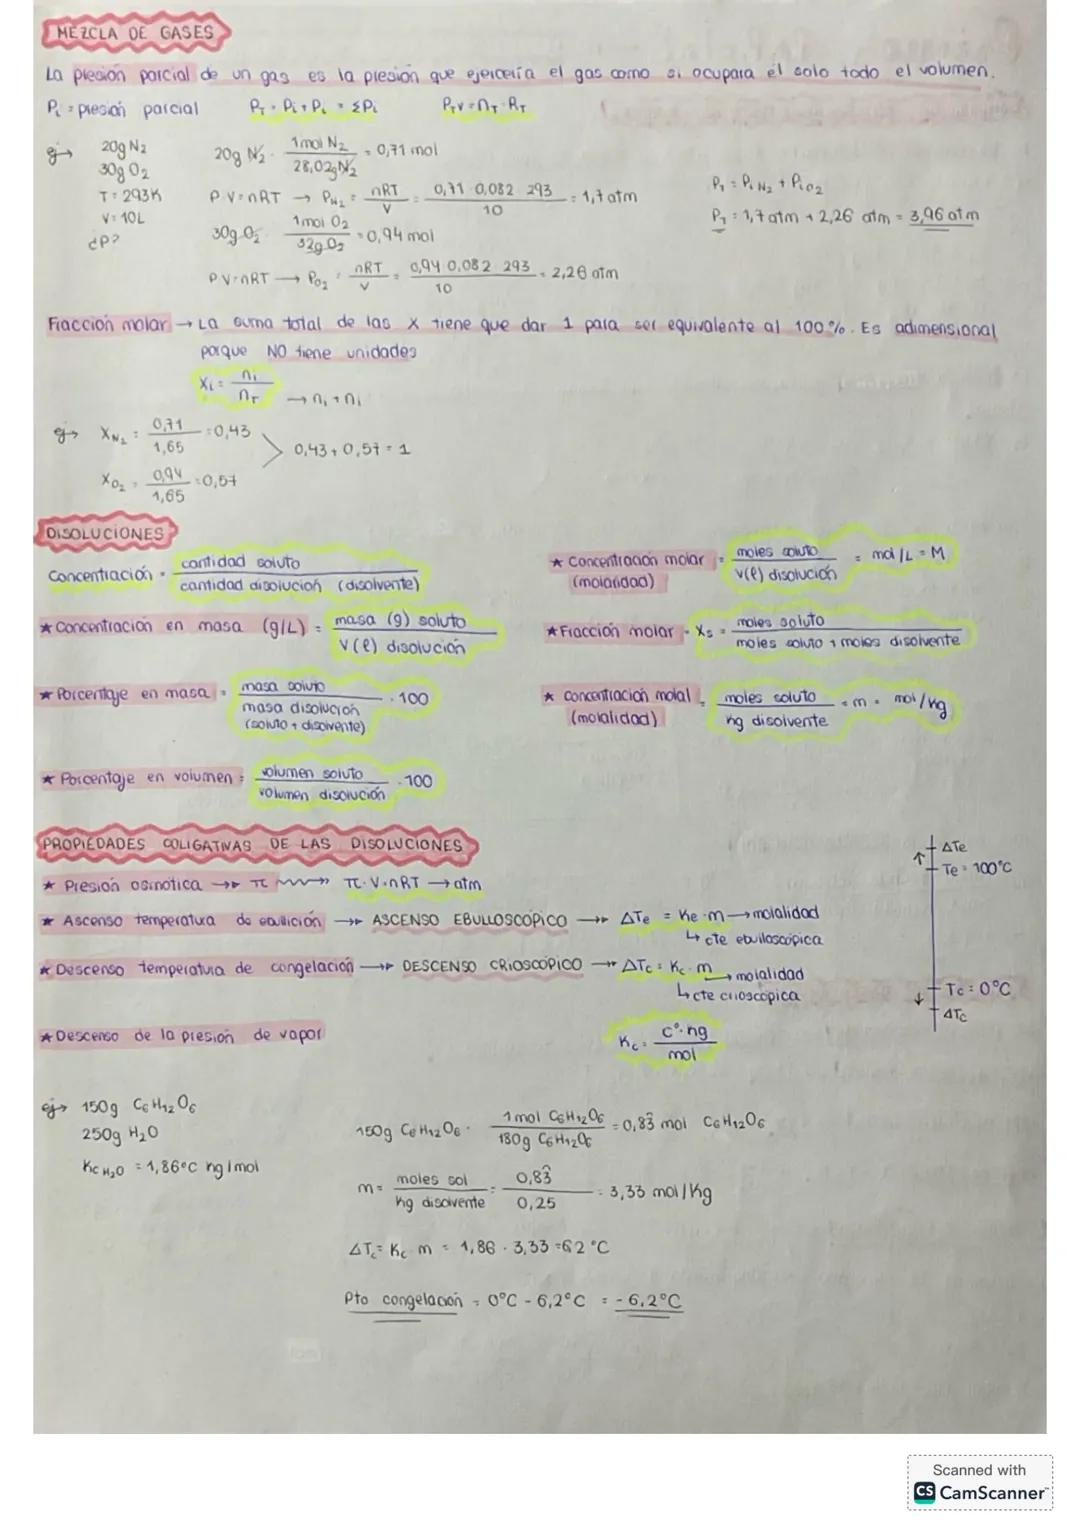 MEZCLA DE GASES
La presión parcial de un gas es la presión que ejercería el gas como si ocupara él solo todo el volumen.
Pi = presión parcial PT = Pi + Pi = ΣPi PT V = nT · RT
ej→ 20g N2
30g O2
T = 293K
V = 10L
¿P?
20g N2 · 1 mol N2 / 28,02g N2 = 0,71 mol
P·V = nRT → PN2 = nRT / V = 0,71 · 0,082 · 293 / 10 = 1,7 atm
30g O2 · 1 mol O2 / 32g O2 = 0,94 mol
P·V = nRT → PO2 = nRT / V = 0,94 · 0,082 · 293 / 10 = 2,26 atm
PT = Pi N2 + Pi O2
PT = 1,7 atm + 2,26 atm = 3,96 atm
Fracción molar → La suma total de las X tiene que dar 1 para ser equivalente al 100%. Es adimensional
porque NO tiene unidades
Xi = ni / nT → ni + ni
ej→ XN2 = 0,71 / 1,65 = 0,43
XO2 = 0,94 / 1,65 = 0,57
0,43 + 0,57 = 1
DISOLUCIONES
Concentración = cantidad soluto / cantidad disolución (disolvente)
★ Concentración en masa (g/L) = masa (g) soluto / V (l) disolución
★ Porcentaje en masa = masa soluto / masa disolución (soluto + disolvente) · 100
★ Porcentaje en volumen = volumen soluto / volumen disolución · 100
★ Concentración molar (molaridad) = moles soluto / V(l) disolución = mol/L = M
★ Fracción molar = Xs = moles soluto / moles soluto + moles disolvente
★ concentración molal (molalidad) = moles soluto / kg disolvente = m = mol/kg
PROPIEDADES COLIGATIVAS DE LAS DISOLUCIONES
★ Presión osmótica → π → π·V = nRT → atm
★ Ascenso temperatura de ebullición → ASCENSO EBULLOSCÓPICO → ΔTe = Ke · m → molalidad
↳ cte ebulloscópica
★ Descenso temperatura de congelación → DESCENSO CRIOSCÓPICO → ΔTc = Kc · m → molalidad
↳ cte crioscópica
★ Descenso de la presión de vapor
Kc = Cº · kg / mol
↑ ΔTe
Te = 100°C
↓ Tc = 0°C
ΔTc
ej→ 150g C6H12O6
250g H2O
Kc H2O = 1,86°C kg/mol
150g C6H12O6 · 1 mol C6H12O6 / 180g C6H12O6 = 0,83̂ mol C6H12O6
m = moles sol / kg disolvente = 0,83̂ / 0,25 = 3,33 mol/Kg
ΔTc = Kc · m = 1,86 · 3,33 = 6,2 °C
Pto congelación = 0°C - 6,2°C = -6,2°C
Scanned with
CS CamScanner